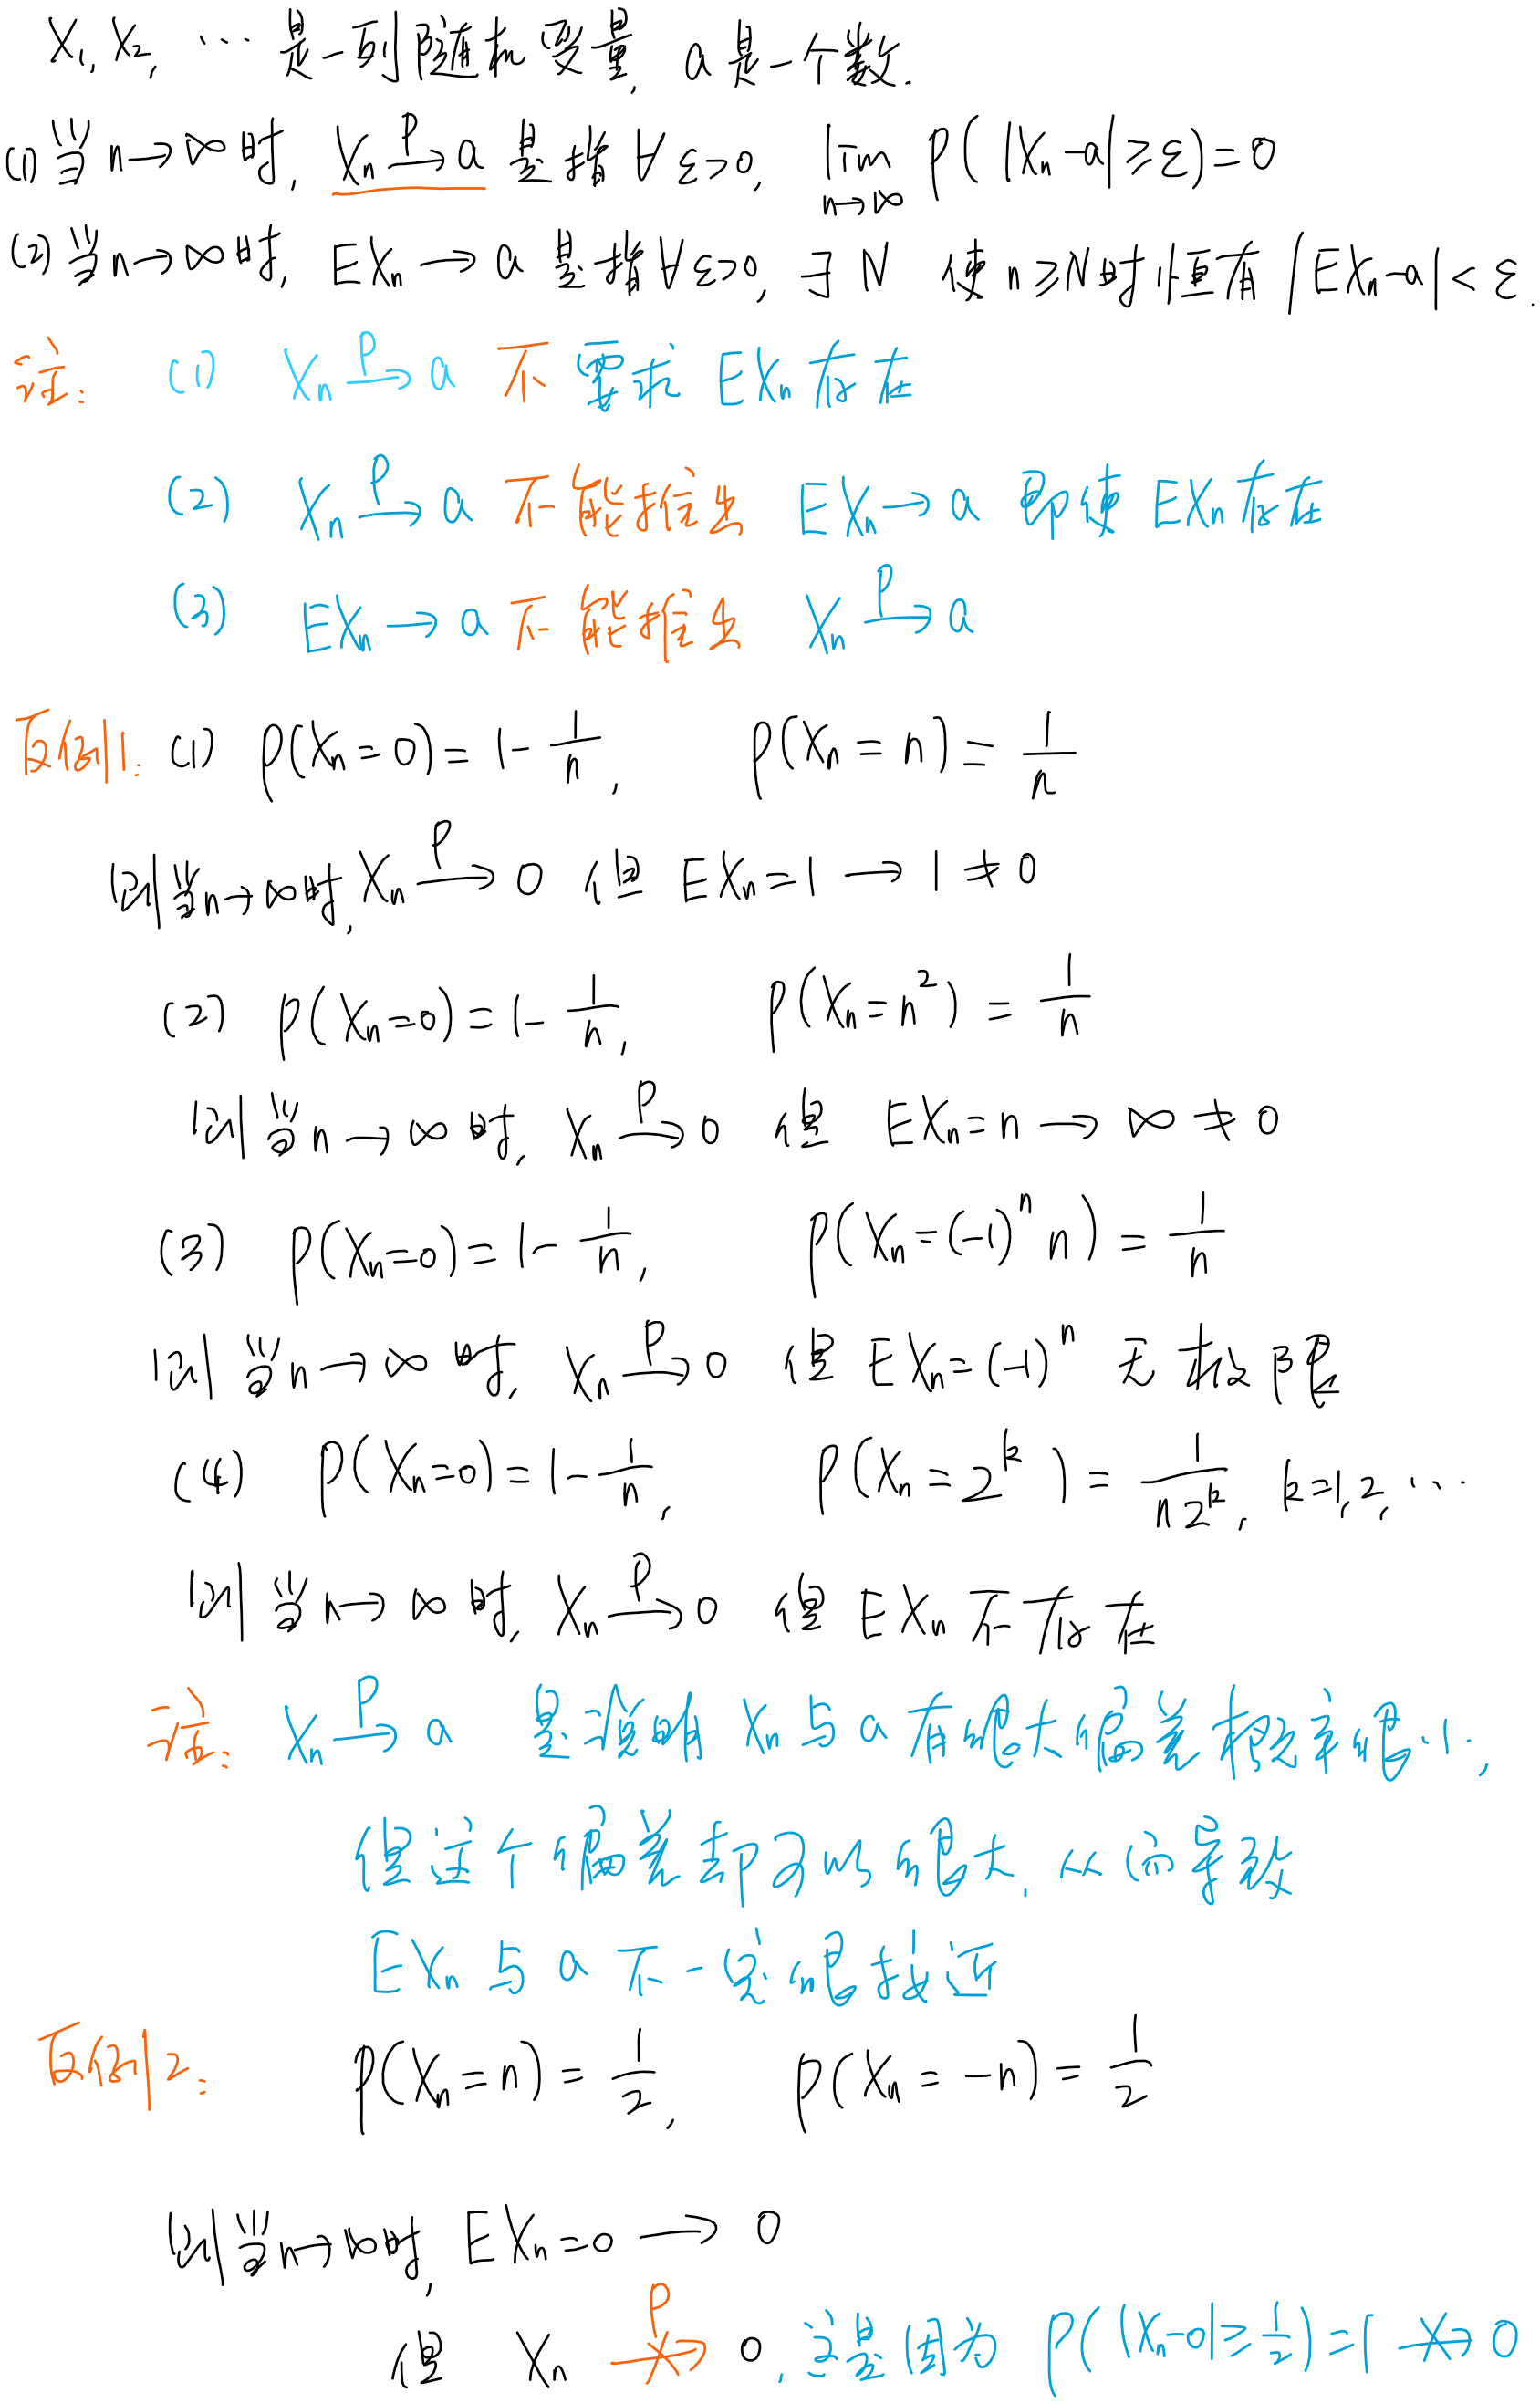 X₁, X₂, ⋯ 是一列随机变量, a是一个数.
(1)当n→∞时, Xₙ \xrightarrow{P} a 是指 ∀ε>0, lim_{n→∞} P(|Xₙ-a|≥ε)=0
(2)当n→∞时, EXₙ→a 是指∀ε>0, ∃N 使n≥N时恒有|EXₙ-a|<ε.
注: (1) Xₙ \xrightarrow{P} a 不要求 EXₙ存在
(2) Xₙ \xrightarrow{P} a 不能推出 EXₙ→a 即使EXₙ存在
(3) EXₙ→a 不能推出 Xₙ \xrightarrow{P} a
反例1: (1) P(Xₙ=0)=1-\frac{1}{n}, P(Xₙ=n)=\frac{1}{n}
则当n→∞时, Xₙ \xrightarrow{P} 0 但 EXₙ=1→1≠0
(2) P(Xₙ=0)=1-\frac{1}{n}, P(Xₙ=n²)=\frac{1}{n}
则当n→∞时, Xₙ \xrightarrow{P} 0 但 EXₙ=n→∞≠0
(3) P(Xₙ=0)=1-\frac{1}{n}, P(Xₙ=(-1)ⁿn)=\frac{1}{n}
则当n→∞时, Xₙ \xrightarrow{P} 0 但EXₙ=(-1)ⁿ 无极限
(4) P(Xₙ=0)=1-\frac{1}{n}, P(Xₙ=2^k)=\frac{1}{n2^k}, k=1,2,⋯
则当n→∞时, Xₙ \xrightarrow{P} 0 但 EXₙ不存在
注: Xₙ \xrightarrow{P} a 是说明 Xₙ与a有很大偏差概率很小,
但这个偏差却可以很大, 从而导致
EXₙ与a不一定很接近
反例2: P(Xₙ=n)=\frac{1}{2}, P(Xₙ=-n)=\frac{1}{2}
则当n→∞时, EXₙ=0→0
但 Xₙ \not\xrightarrow{P} 0, 这是因为 P(|Xₙ-0|≥\frac{1}{2})=1↛0